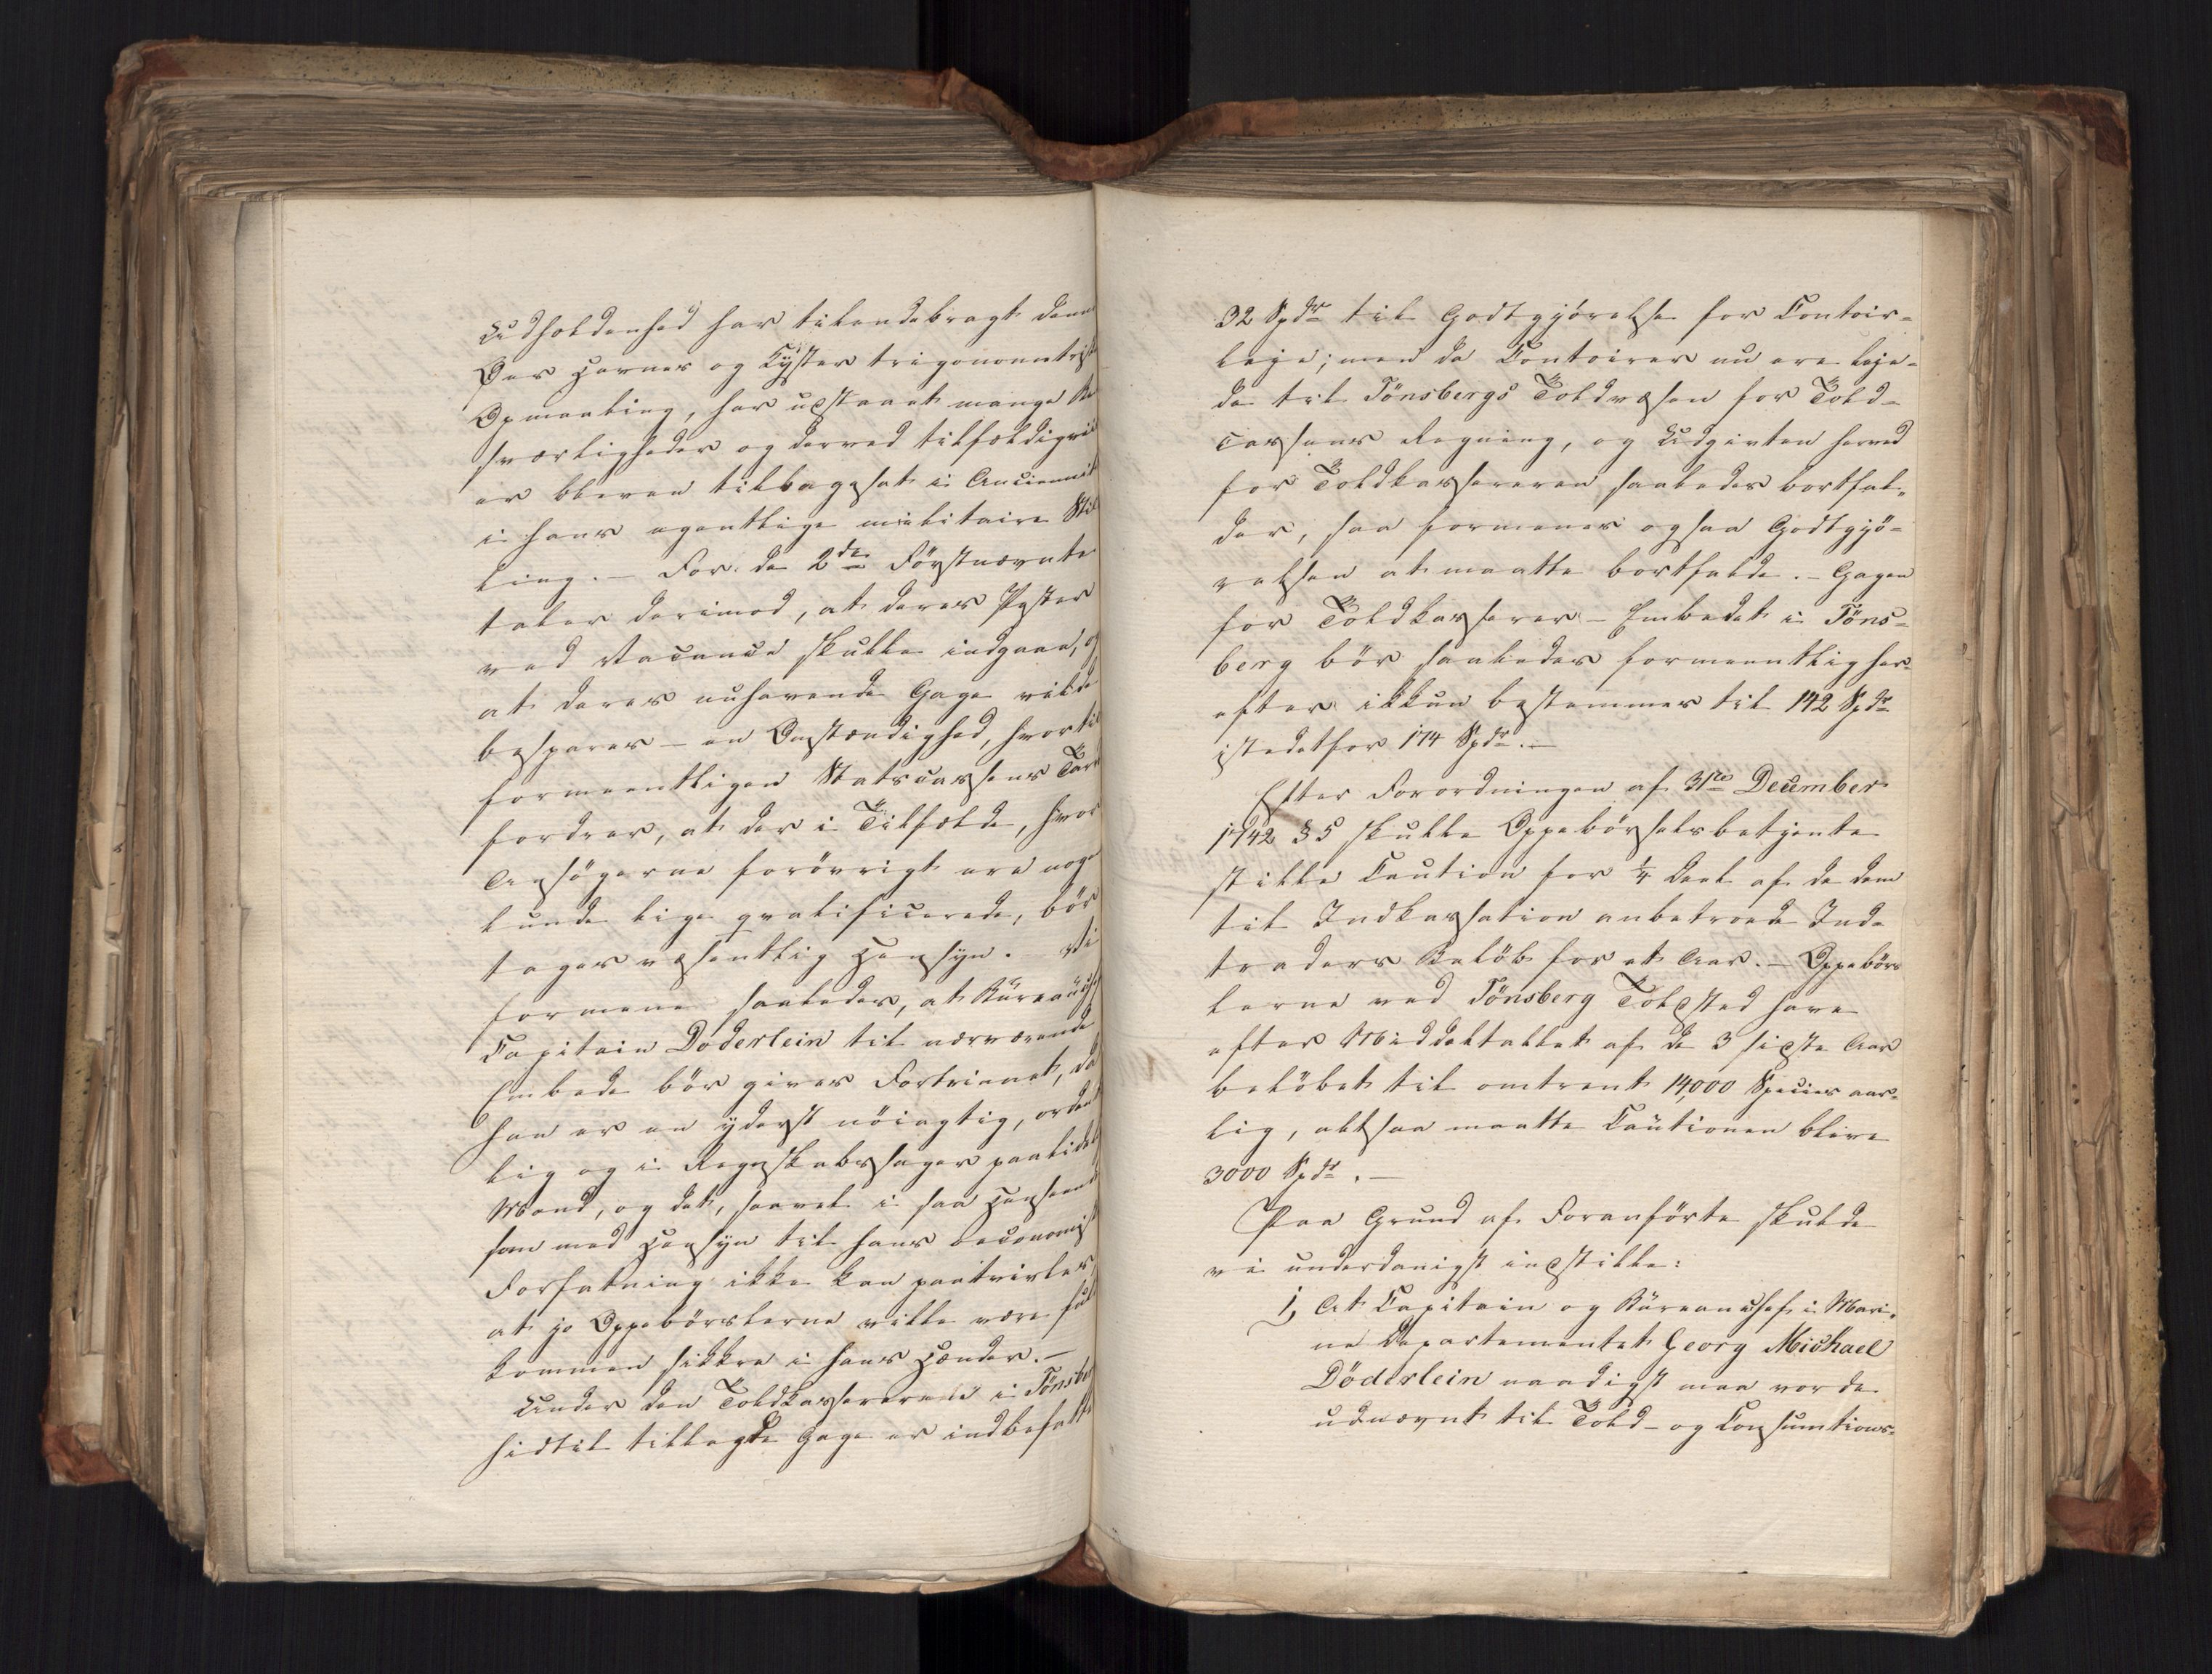 Udholdenhed har tilendebragt denne
Øernes og Kyster trigonometriske
Opmaaling, har udstaaet mange Be
sværligheder og derved tilfældigviis
er bleven tilbagesat i Anciennitet
i hans egentlige militaire Stil
ling. – For de 2de Förstnævnte
taler derimod, at deres Poster
ved Vacance skulle indgaae, og
at deres nuhavende Gage vilde
bespares – en Omstændighed, hvortil
formeentligen Statscassens Tarv
fordrer, at der i Tilfælde, hvor
Ansögerne forövrigt ere nogen
lunde lige qvalificerede, bör
tages væsentlig Hensyn. Vi
formene saaledes, at Büreauchef
Capitain Döderlein til nærværende
Embede bör gives Fortrinnet, da
han er en yderst nöiagtig, ordent
lig og i Regnskabssager paalidelig
Mand, og det, saavel i saa Henseende
som med Hensyn til hans oeconomiske
Forfatning ikke kan paatvivles,
at jo Oppebörslerne ville være fuld
kommen sikkre i hans Hænder. –
Under den Toldkassereren i Tönsberg
hidtil tillagte Gage er indbefattet
32 Spdr til Godtgjörelse for Contoir-
leje; men da Contoirer nu ere leje-
de til Tönsbergs Toldvæsen for Told-
cassens Regning, og Udgivten herved
for Toldkassereren saaledes bortfal-
der, saa formenes ogsaa Godtgjö-
relsen at maatte bortfalde. – Gagen
for Toldkasserer-Embedet i Töns-
berg bör saaledes formeentlig her-
efter ikkun bestemmes til 142 Spdr
istedetfor 174 Spdr. –
Efter Forordningen af 31te December
1742 § 5 skulle Oppebörselsbetjente
stille Caution for ¼ Deel af de dem
til Indkassation anbetroede Ind-
traders Belöb for et Aar. – Oppebörs
lerne ved Tönsberg Toldsted have
efter Middeltallet af de 3 sidste Aar
belöbet til omtrent 14,000 Species aar-
lig, altsaa maatte Cautionen blive
3000 Spdr. –
Paa Grund af Foranförte skulde
vi underdanigst indstille:
1, At Capitain og Büreauchef i Mari-
ne Departementet Georg Michael
Döderlein naadigst maa vorde
udnævnt til Told- og Consumtions-